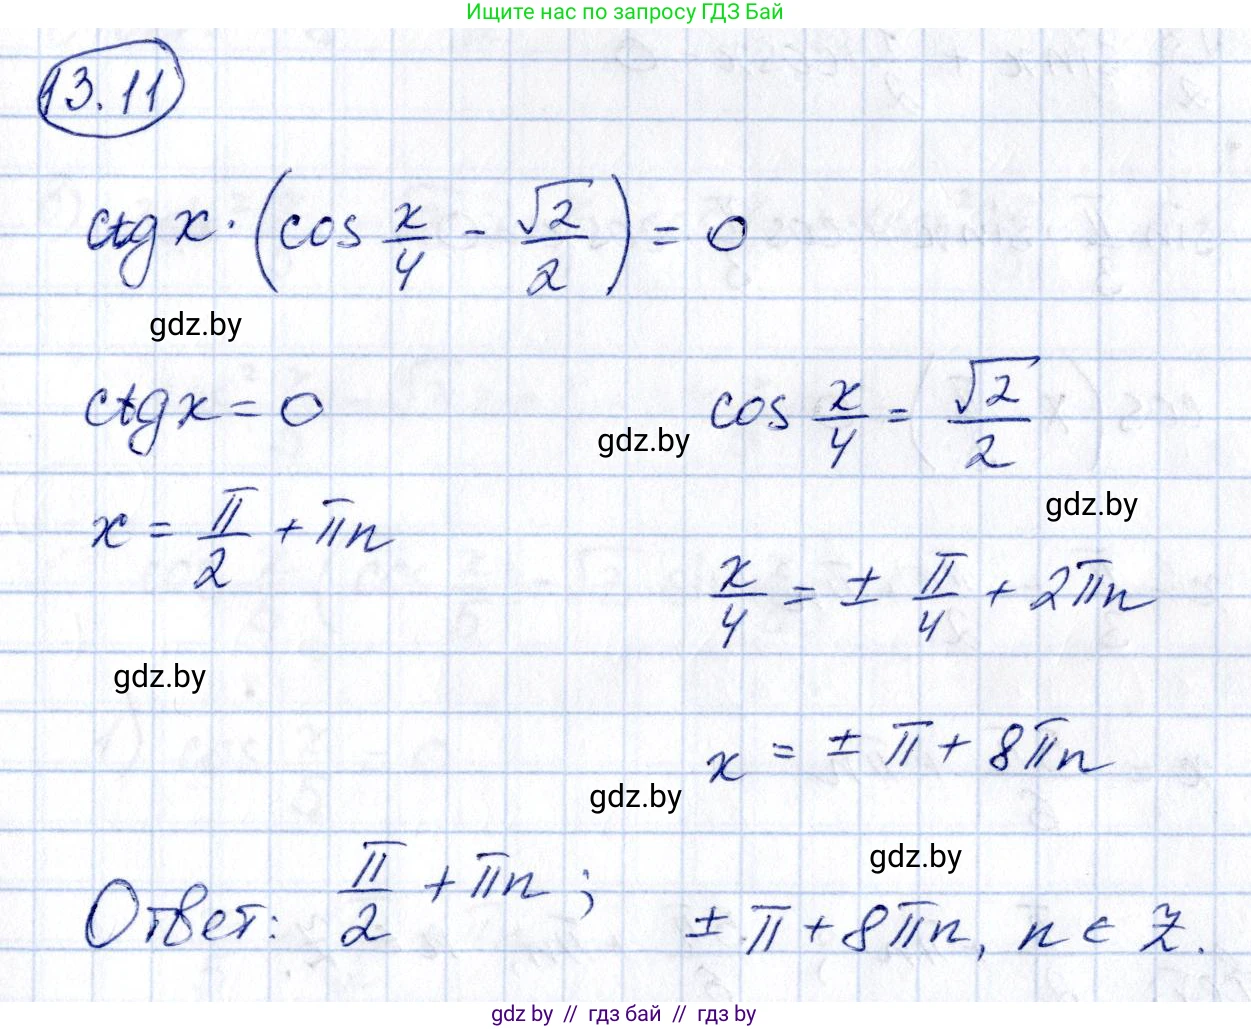 Ищите нас по запросу ГДЗ Бай
13.11
ctg x · (cos x/4 - √2/2) = 0
gdz.by
ctg x = 0
cos x/4 = √2/2
gdz.by
gdz.by
x = π/2 + πn
x/4 = ± π/4 + 2πn
gdz.by
x = ± π + 8πn
gdz.by
gdz.by
Ответ: π/2 + πn; ± π + 8πn, n ∈ Z.
gdz.by // гдз бай // гдз by